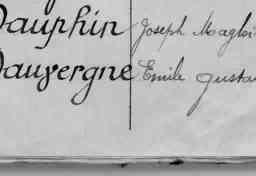 Dauphin Joseph Magloi
Dauvergne Emile Gusta